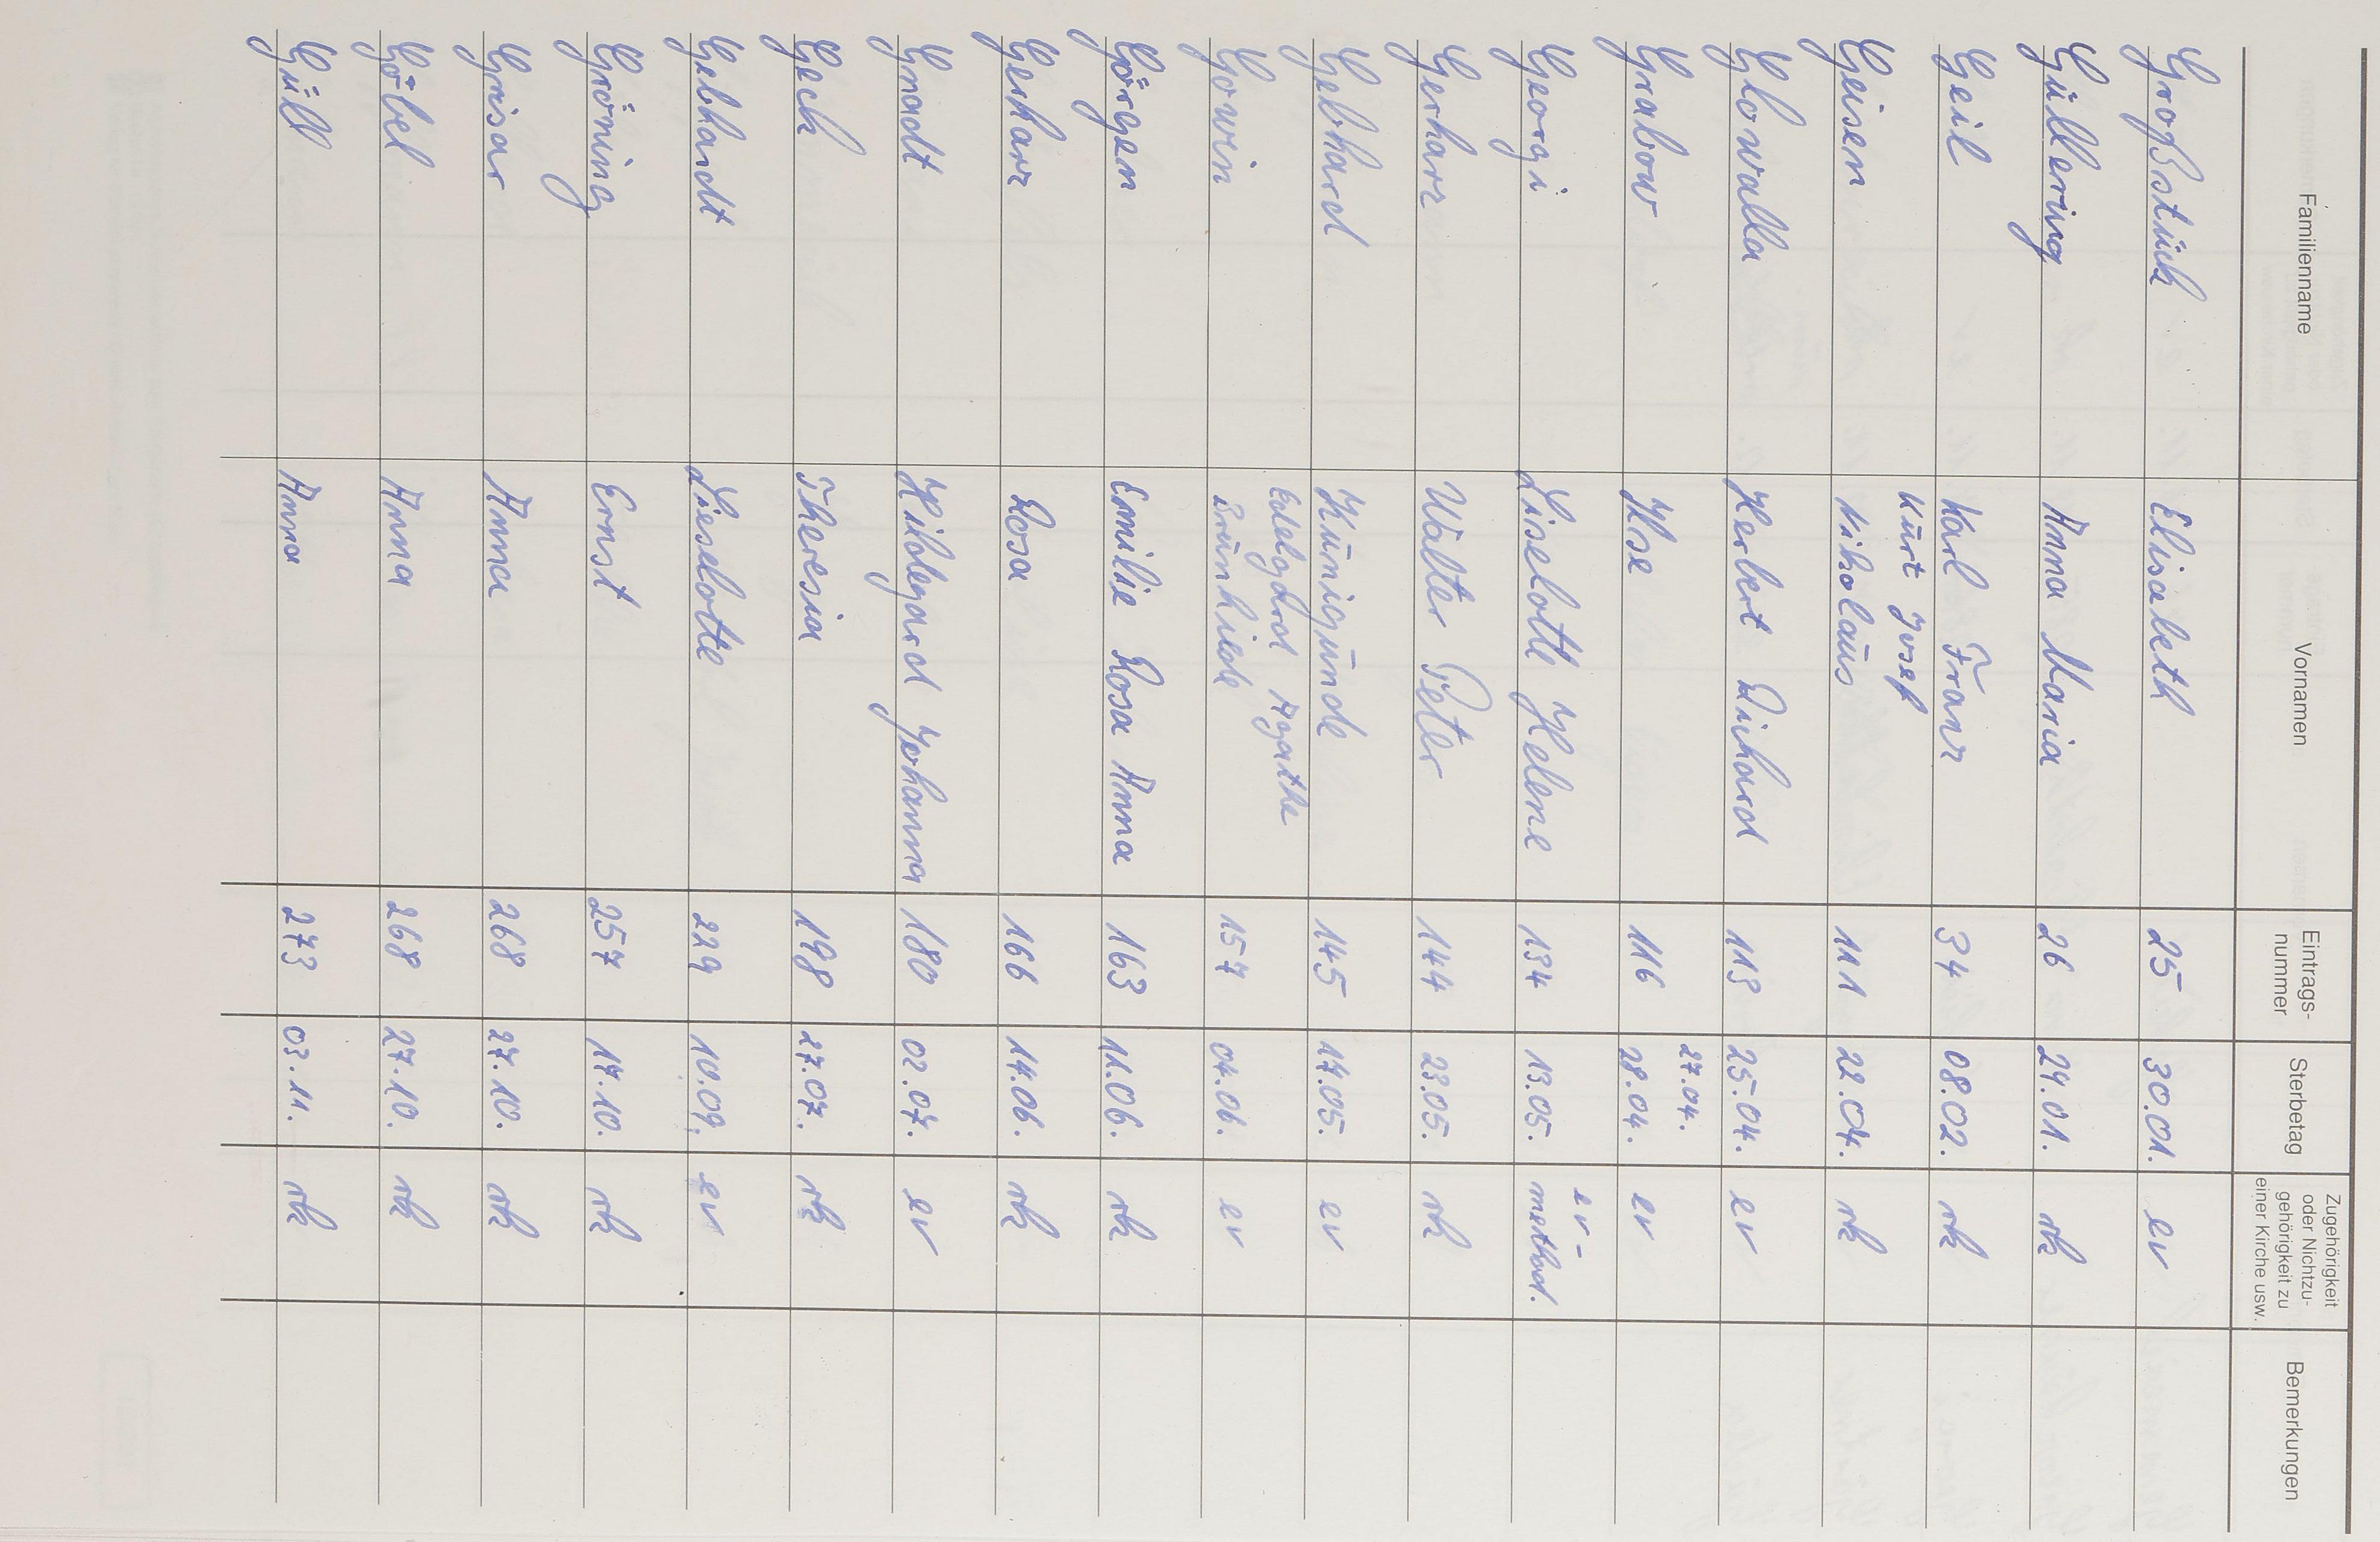 Familienname Vornamen Eintrags-nummer Sterbetag Zugehörigkeit oder Nichtzu-gehörigkeit zu einer Kirche usw. Bemerkungen
Großstück Elisabeth 25 30.01. ev
Güllering Anna Maria 26 29.01. rk
Geil Karl Franz 34 08.02. rk
Kurt Josef
Geisen Nikolaus 111 22.04. rk
Glowalla Herbert Richard 113 25.04. ev
27.04.
Grabow Ilse 116 28.04. ev
Georgi Liselotte Helene 134 13.05. ev-method.
Gerharz Walter Peter 144 23.05. rk
Gebhard Kunigunde 145 17.05. ev
Edelgard Agathe
Gowin Brunhilde 157 04.06. ev
Görgen Emilie Rosa Anna 163 11.06. rk
Gerharz Rosa 166 14.06. rk
Gnadt Hildegard Johanna 180 02.07. ev
Gech Theresia 198 27.07. rk
Gebhardt Lieselotte 229 10.09. ev
Gröning Ernst 257 17.10. rk
Grisar Anna 268 27.10. rk
Göbel Anna 268 27.10. rk
Güll Anna 273 03.11. rk